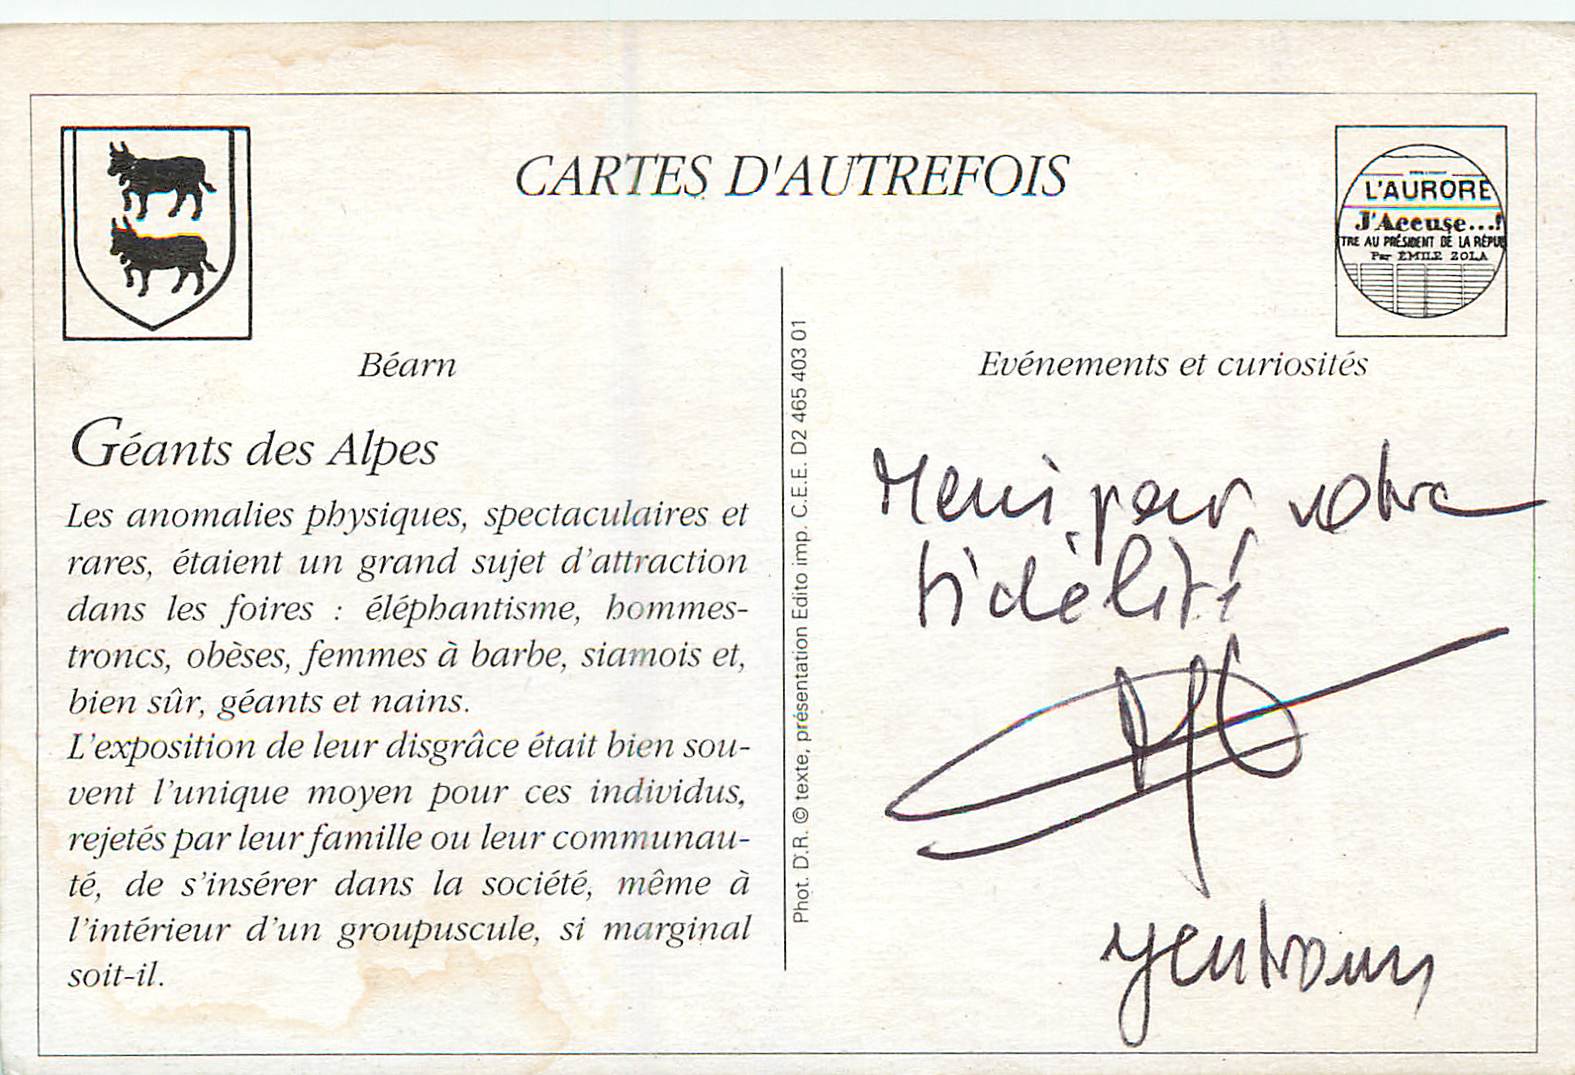 CARTES D'AUTREFOIS
L'AURORE
J'Accuse...!
TRE AU PRÉSIDENT DE LA RÉPU
Par ÉMILE ZOLA
Béarn
Evénements et curiosités
Géants des Alpes
Les anomalies physiques, spectaculaires et
rares, étaient un grand sujet d'attraction
dans les foires : éléphantisme, hommes-
troncs, obèses, femmes à barbe, siamois et,
bien sûr, géants et nains.
L'exposition de leur disgrâce était bien sou-
vent l'unique moyen pour ces individus,
rejetés par leur famille ou leur communau-
té, de s'insérer dans la société, même à
l'intérieur d'un groupuscule, si marginal
soit-il.
Phot. D.R. © texte, présentation Edito imp. C.E.E. D2 465 403 01
Merci pour votre
fidèlité